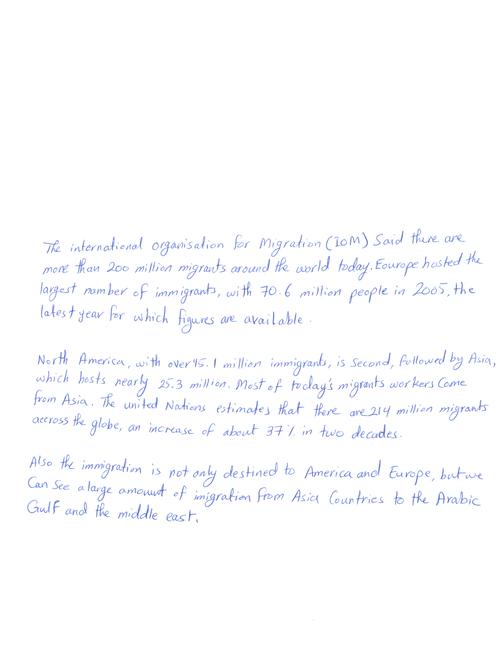 The international organisation for Migration (IOM) Said there are
more than 200 million migrants around the world today. Eourope hosted the
largest number of immigrants, with 70.6 million people in 2005, the
latest year for which figures are available.
North America, with over 45.1 million immigrants, is second, followed by Asia,
which hosts nearly 25.3 million. Most of today's migrants workers Come
from Asia. The united Nations estimates that there are 214 million migrants
accross the globe, an increase of about 37% in two decades.
Also the immigration is not only destined to America and Europe, but we
Can see a large amount of imigration from Asia Countries to the Arabic
Gulf and the middle east.